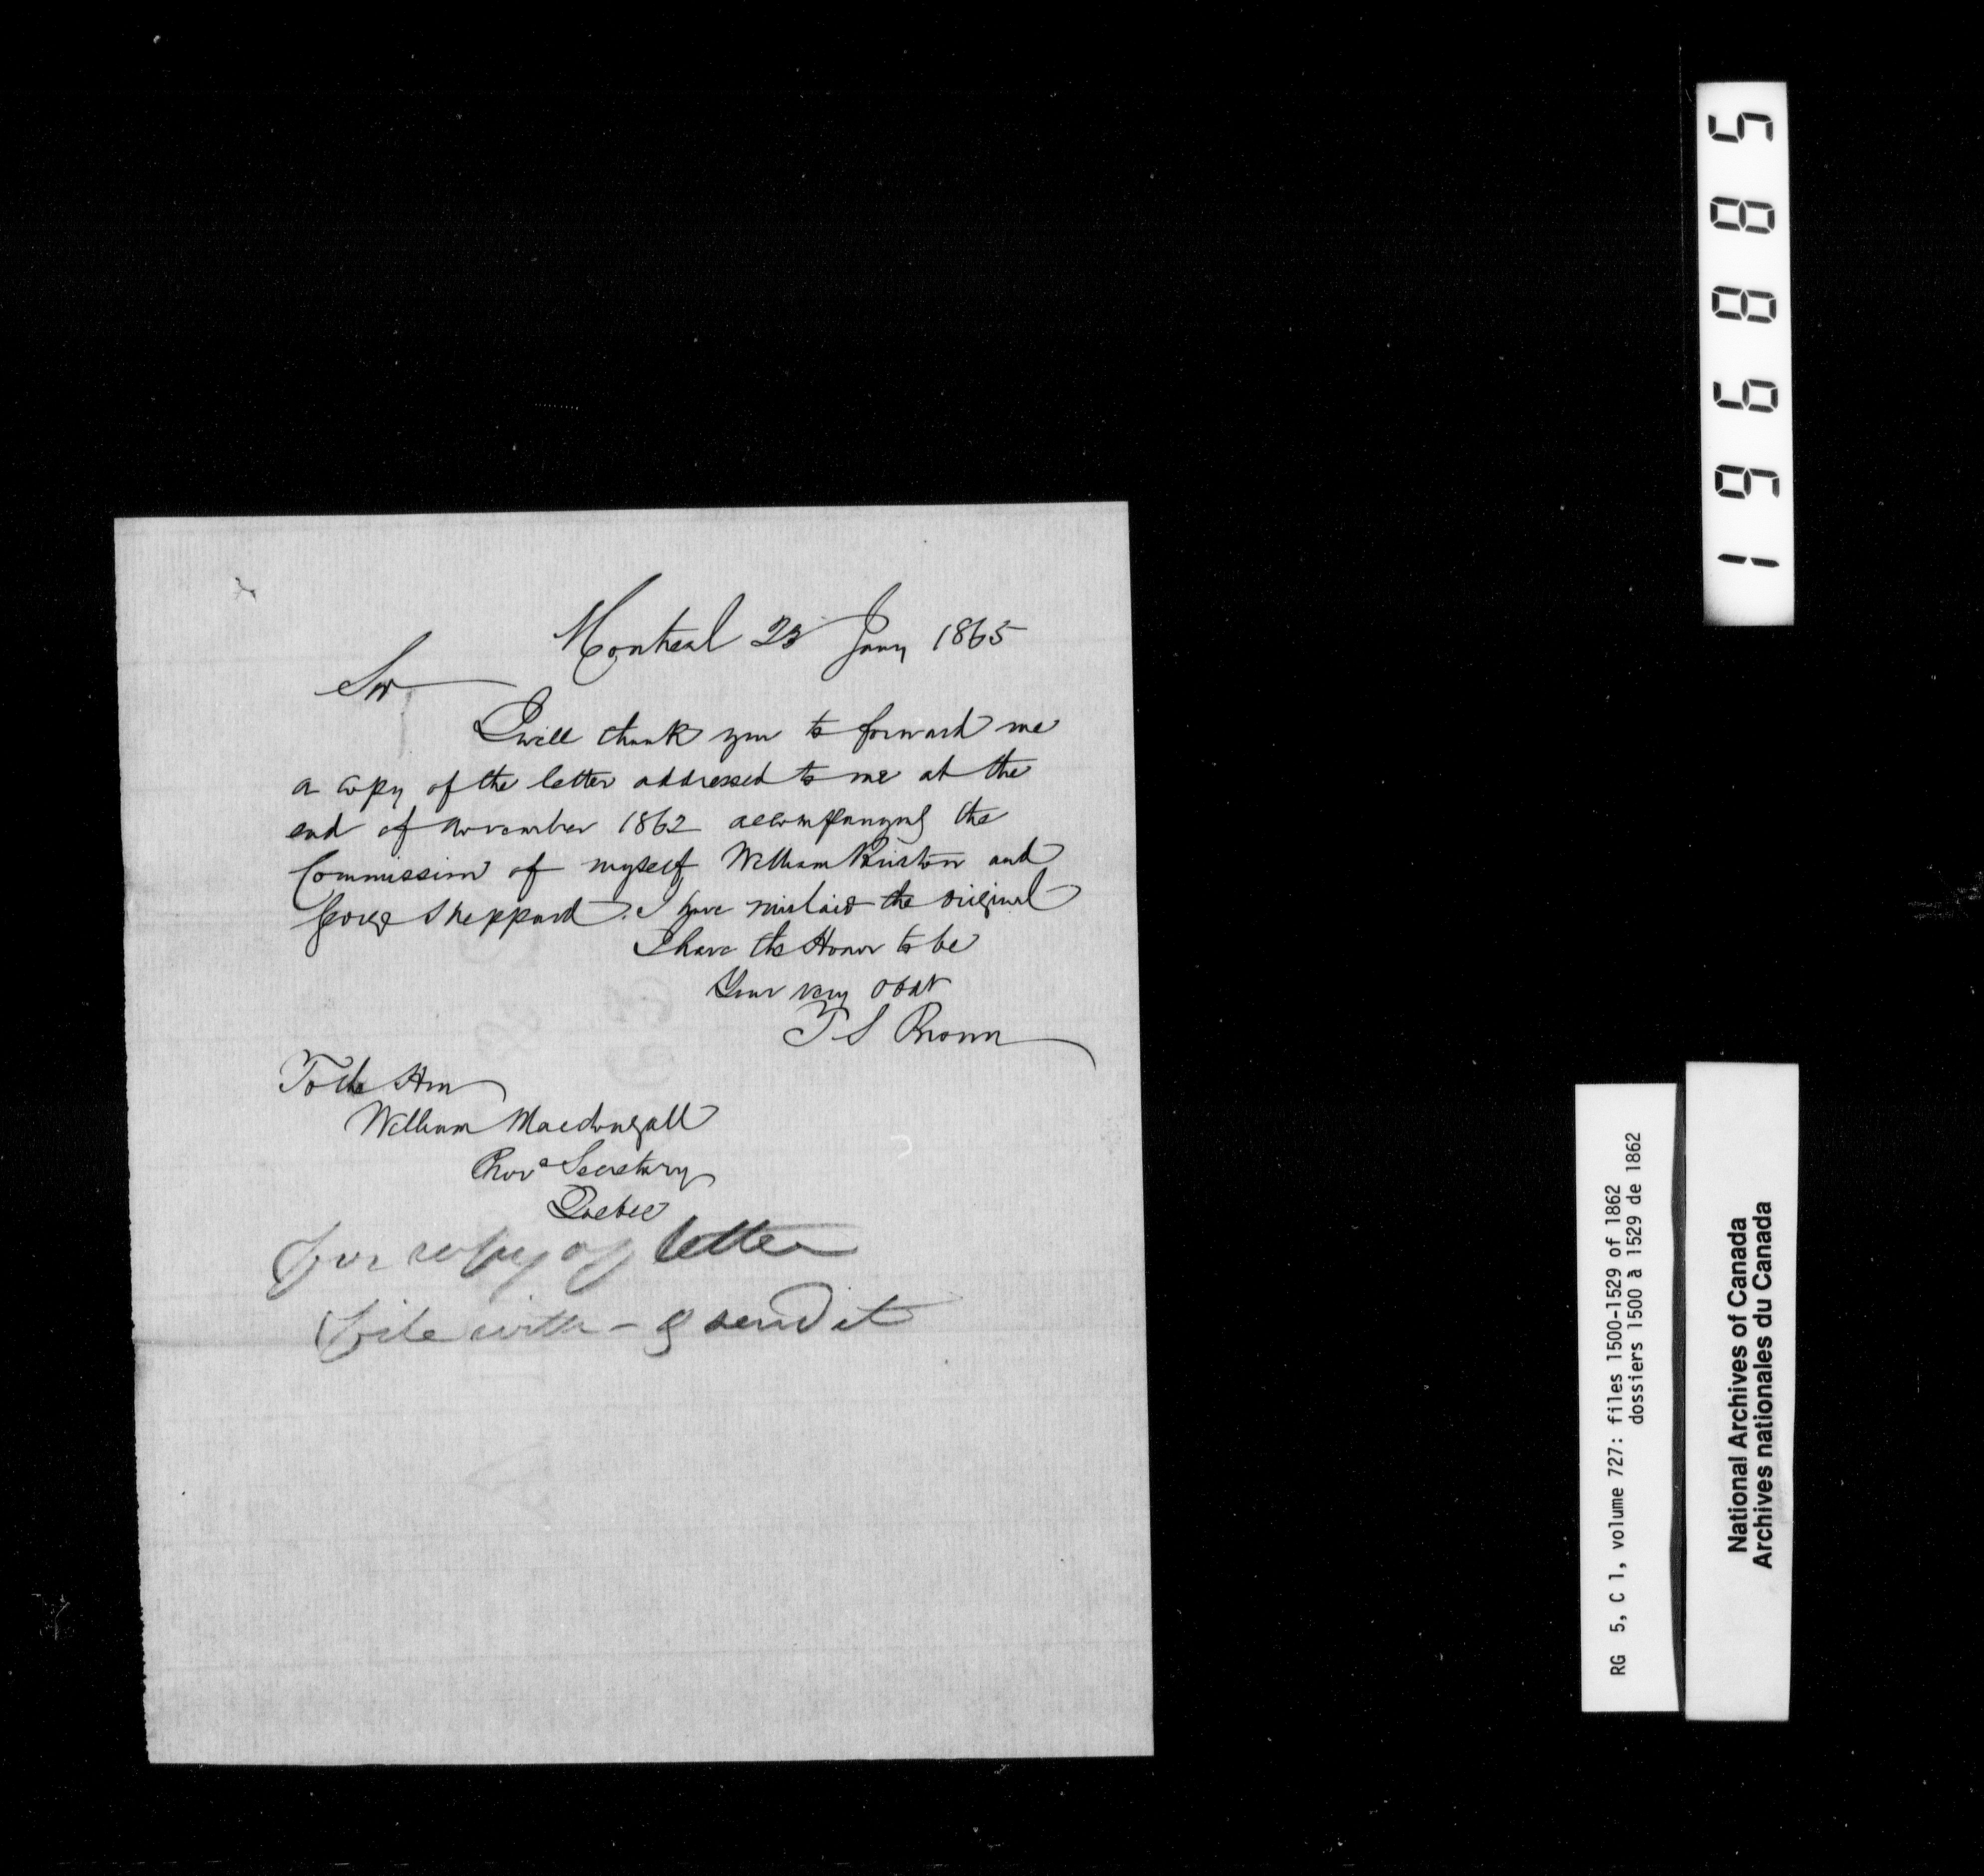 Montreal 23 Jany 1865
Sir
I will thank you to forward me
a copy of the letter addressed to me at the
end of November 1862 accompanying the
Commission of myself, William Bristow and
George Sheppard. I have mislaid the original
I have the Honor to be
Your very obdt
T S Brown
To the Hon
William Macdougall
Prov<sup>l</sup> Secretary
Quebec
For copy of letter
File with - & send it
196885
RG 5, C 1, volume 727: files 1500-1529 of 1862
dossiers 1500 à 1529 de 1862
National Archives of Canada
Archives nationales du Canada